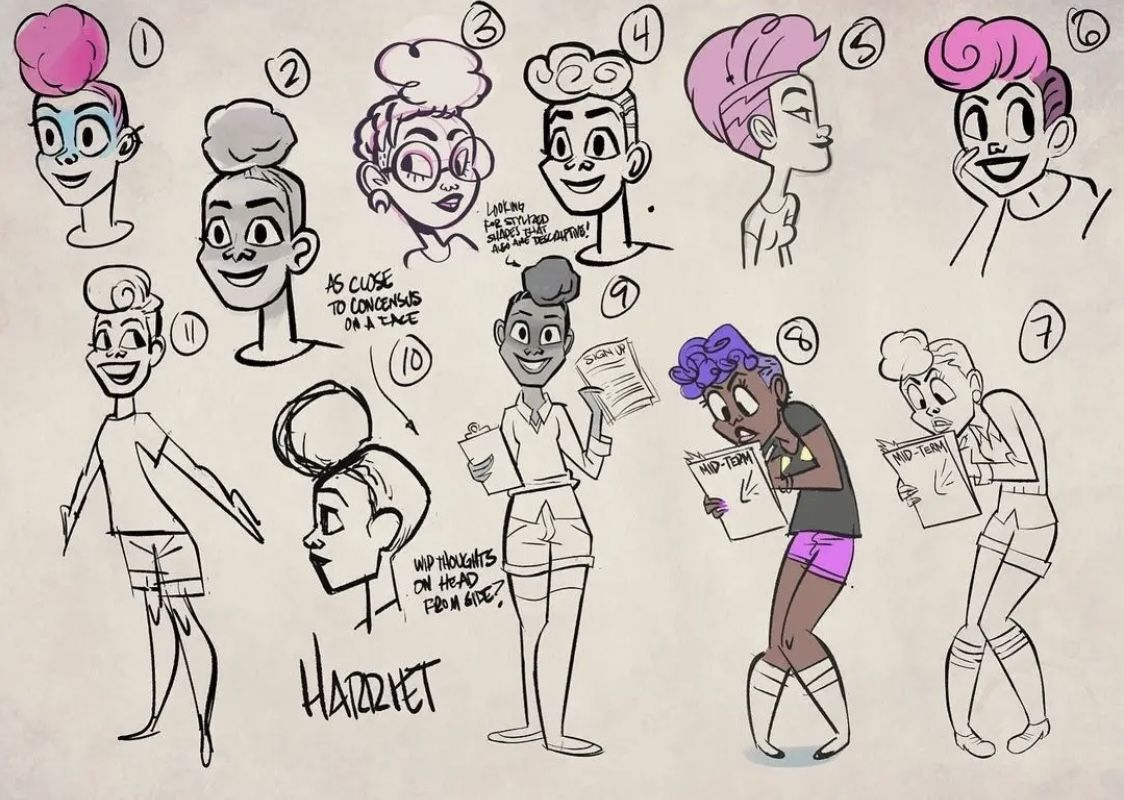 1
2
3
4
5
6
LOOKING
FOR STYLIZED
SHAPES THAT
ALSO ARE DESCRIPTIVE!
AS CLOSE
TO CONCENSUS
ON A FACE
11
10
9
SIGN UP
8
7
MID-TERM
MID-TERM
WIP THOUGHTS
ON HEAD
FROM SIDE?
HARRIET